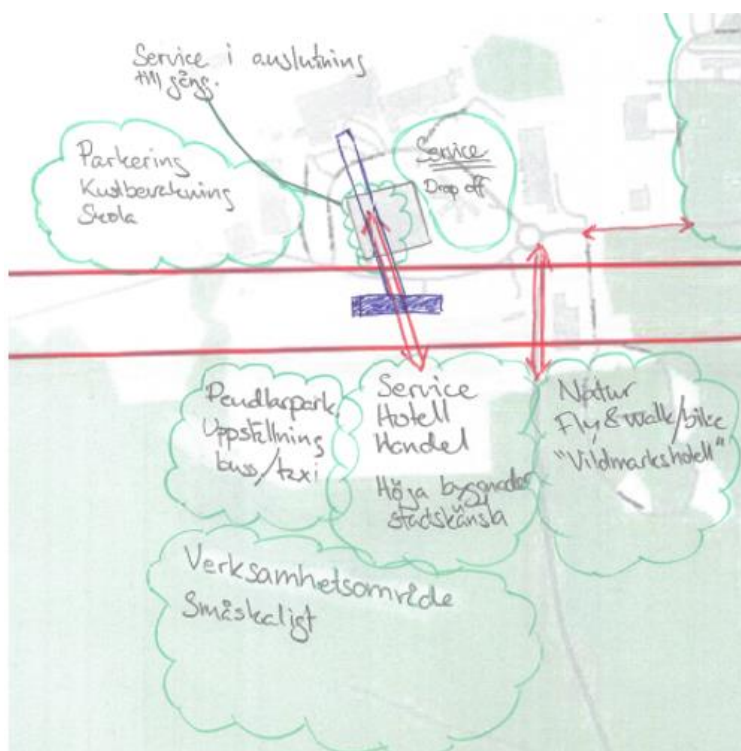 Service i anslutning
till gång.
Parkering
Kustbevakning
Skola
Service
Drop off
Pendlarpark.
Uppställning
buss/taxi
Service
Hotell
Handel
Höja byggnader
stadskänsla
Natur
Fly & walk/bike
"Vildmarkshotell"
Verksamhetsområde
Småskaligt